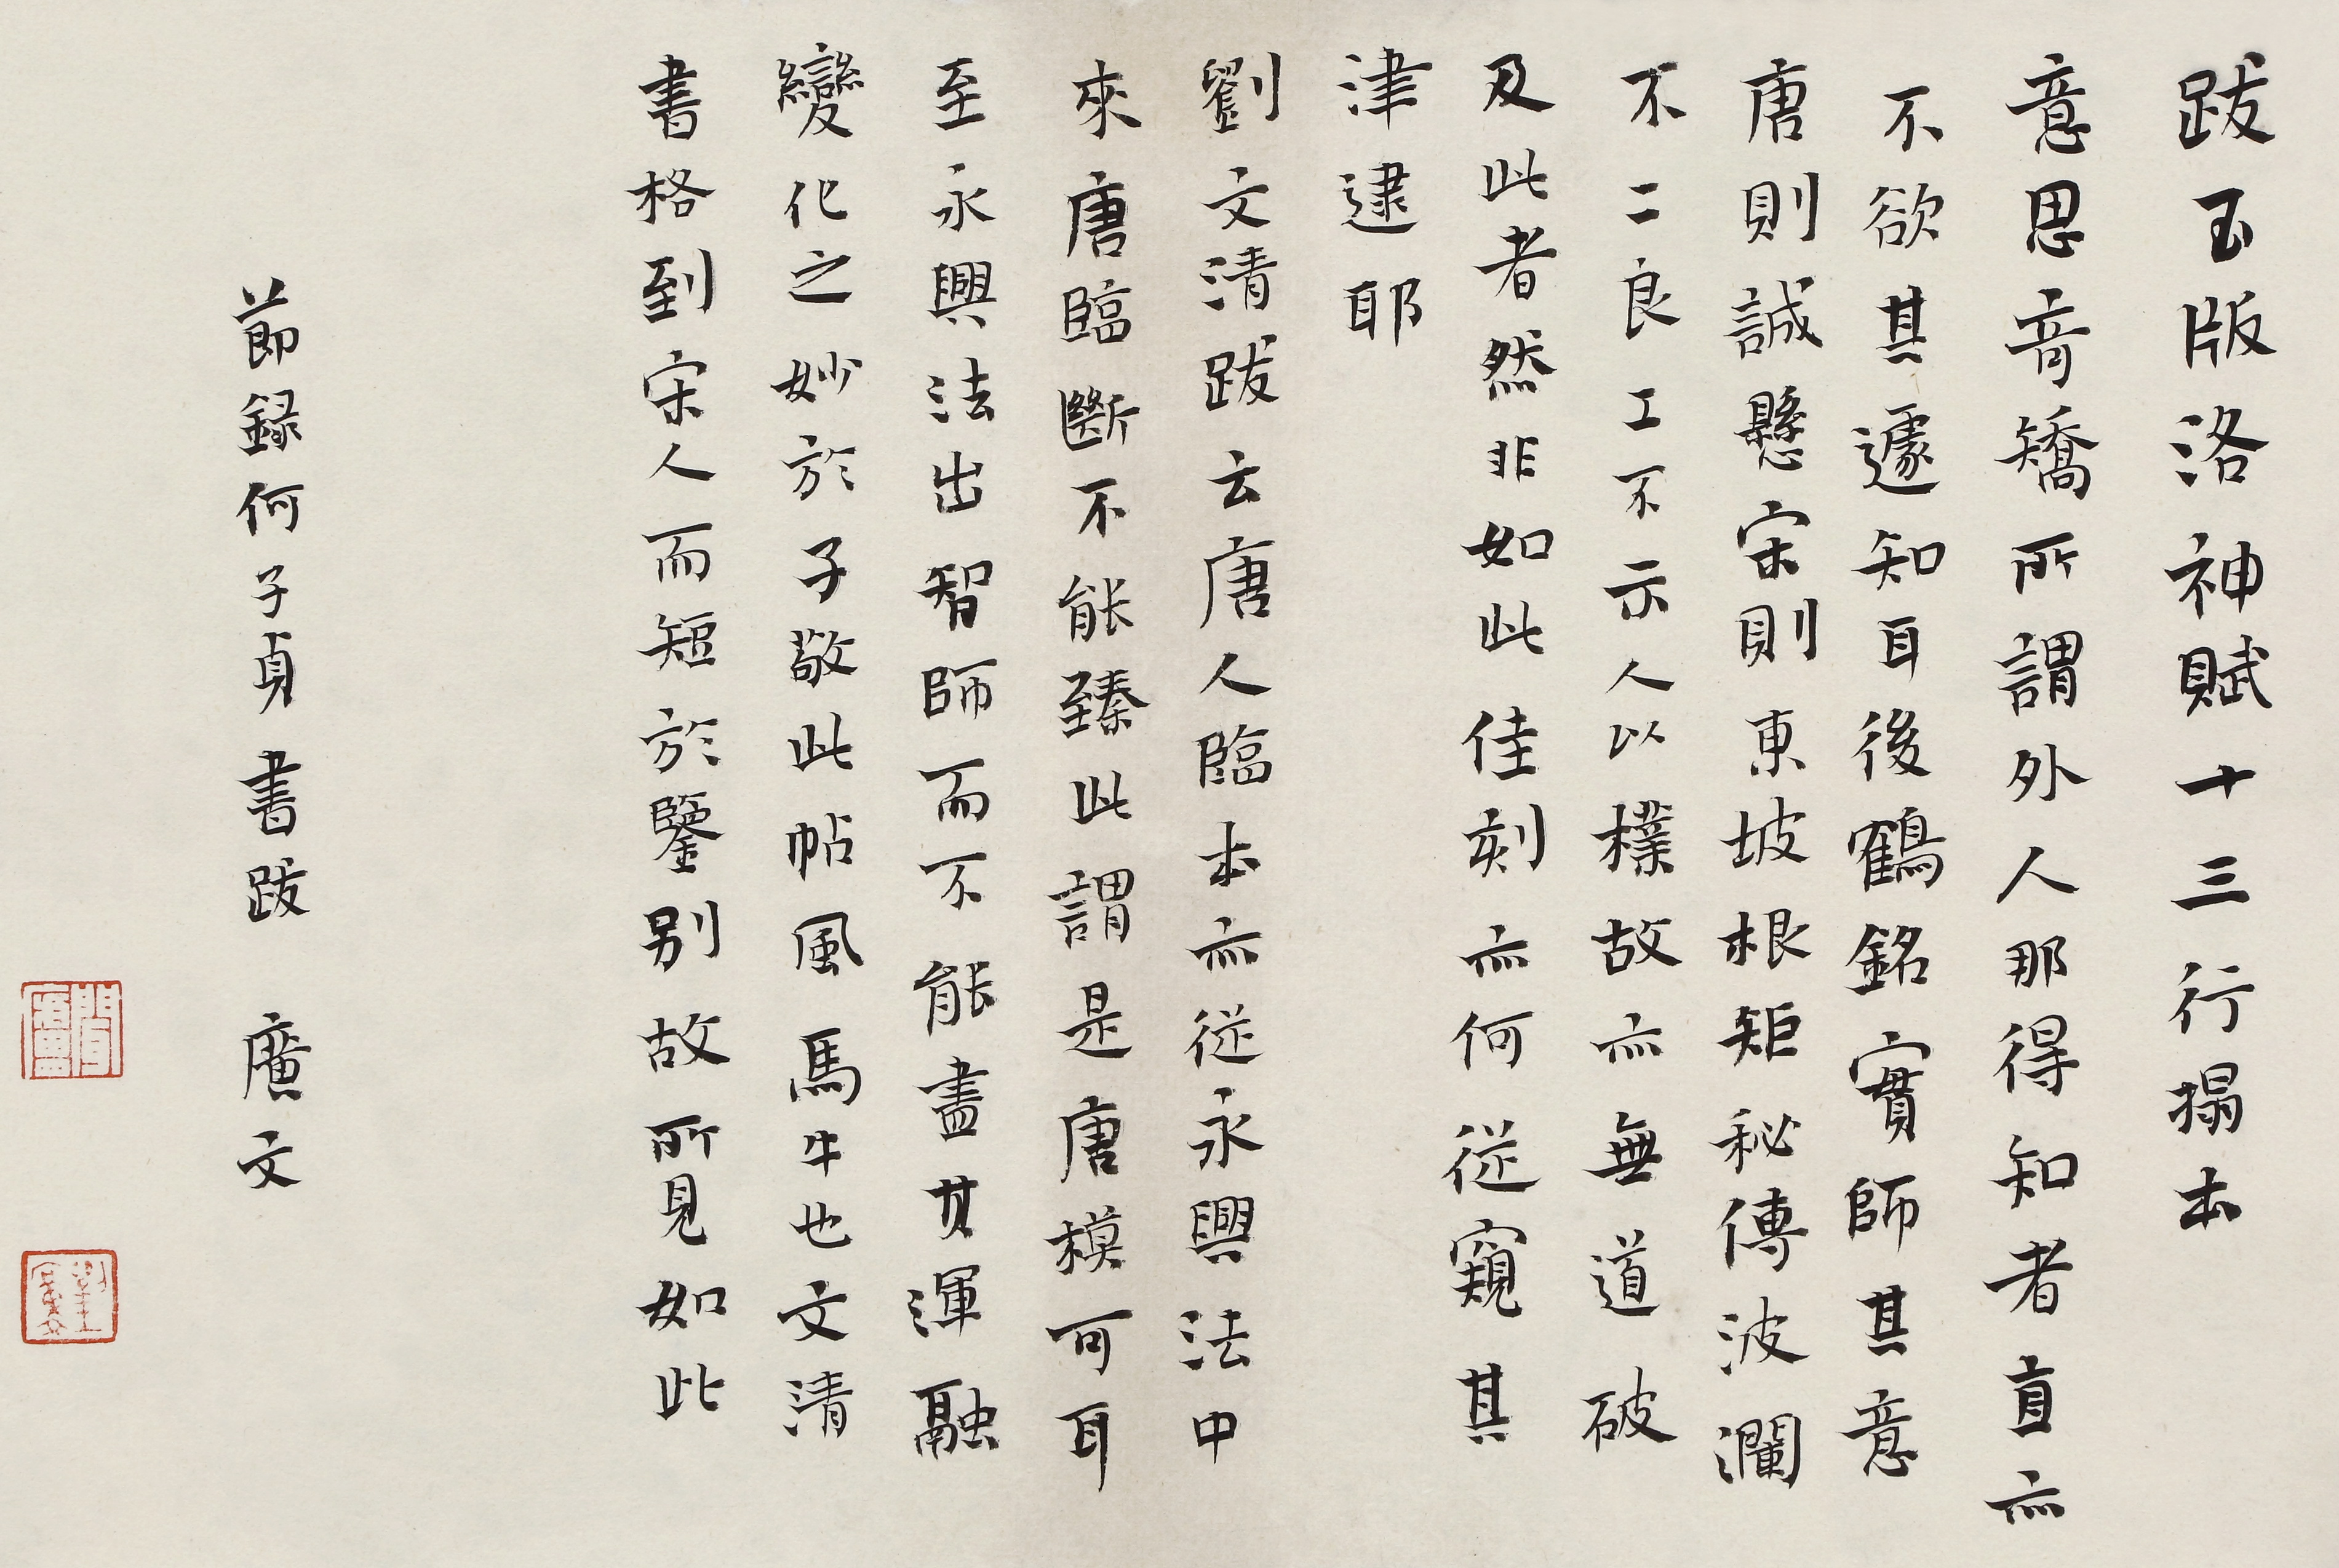 跋玉版洛神賦十三行搨本
意思音矯所謂外人那得知者直亦
不欲其遽知耳後鶴銘實師其意
唐則誠懸宋則東坡根矩秘傳波瀾
不二良工不示人以樸故亦無道破
及此者然非如此佳刻亦何從窺其
津逮耶
劉文清跋云唐人臨本亦從永興法中
來唐臨斷不能臻此謂是唐模可耳
至永興法出智師而不能盡其渾融
變化之妙於子敬此帖風馬牛也文清
書格到宋人而短於鑒別故所見如此
節錄何子貞書跋 廣文